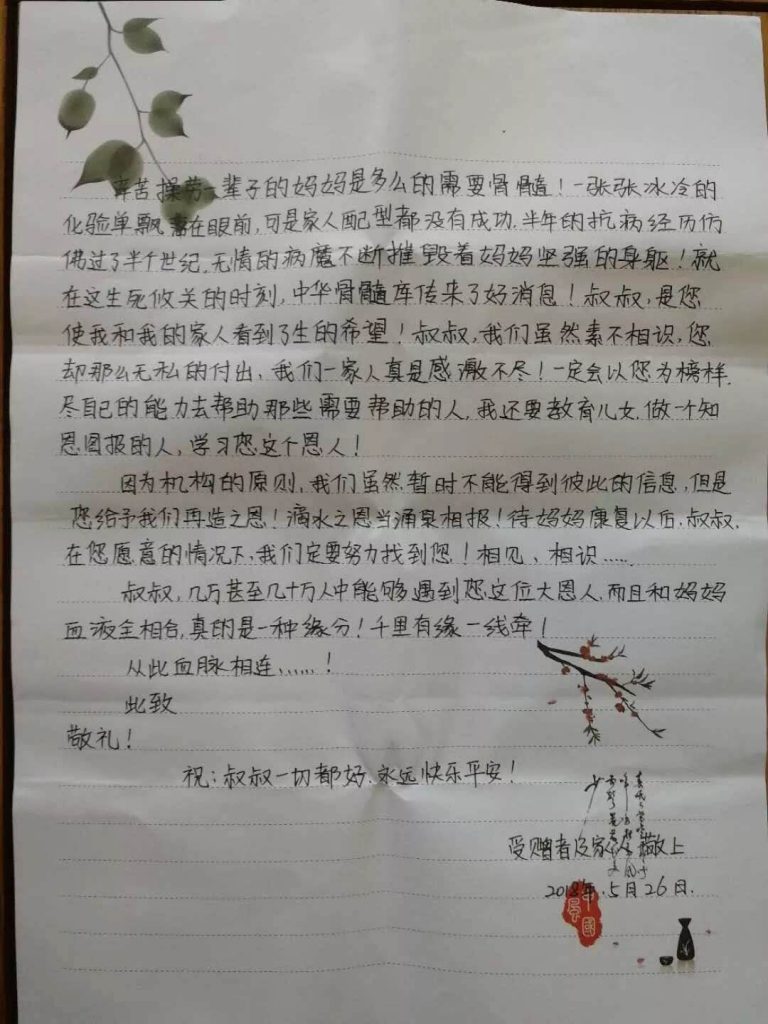 辛苦操劳一辈子的妈妈是多么的需要骨髓！一张张冰冷的
化验单飘落在眼前，可是家人配型都没有成功，半年的抗病经历仿
佛过了半个世纪，无情的病魔不断摧毁着妈妈坚强的身躯！就
在这生死攸关的时刻，中华骨髓库传来了好消息！叔叔，是您
使我和我的家人看到了生的希望！叔叔，我们虽然素不相识，您
却那么无私的付出，我们一家人真是感激不尽！一定会以您为榜样，
尽自己的能力去帮助那些需要帮助的人，我还要教育儿女，做一个知
恩图报的人，学习您这个恩人！
因为机构的原则，我们虽然暂时不能得到彼此的信息，但是
您给予我们再造之恩！滴水之恩当涌泉相报！待妈妈康复以后，叔叔，
在您愿意的情况下，我们定要努力找到您！相见、相识……
叔叔，几万甚至几十万人中能够遇到您这位大恩人，而且和妈妈
血液全相合，真的是一种缘分！千里有缘一线牵！
从此血脉相连……！
此致
敬礼！
祝：叔叔一切都好，永远快乐平安！
受赠者及家人 敬上
2018年5月26日
中國風